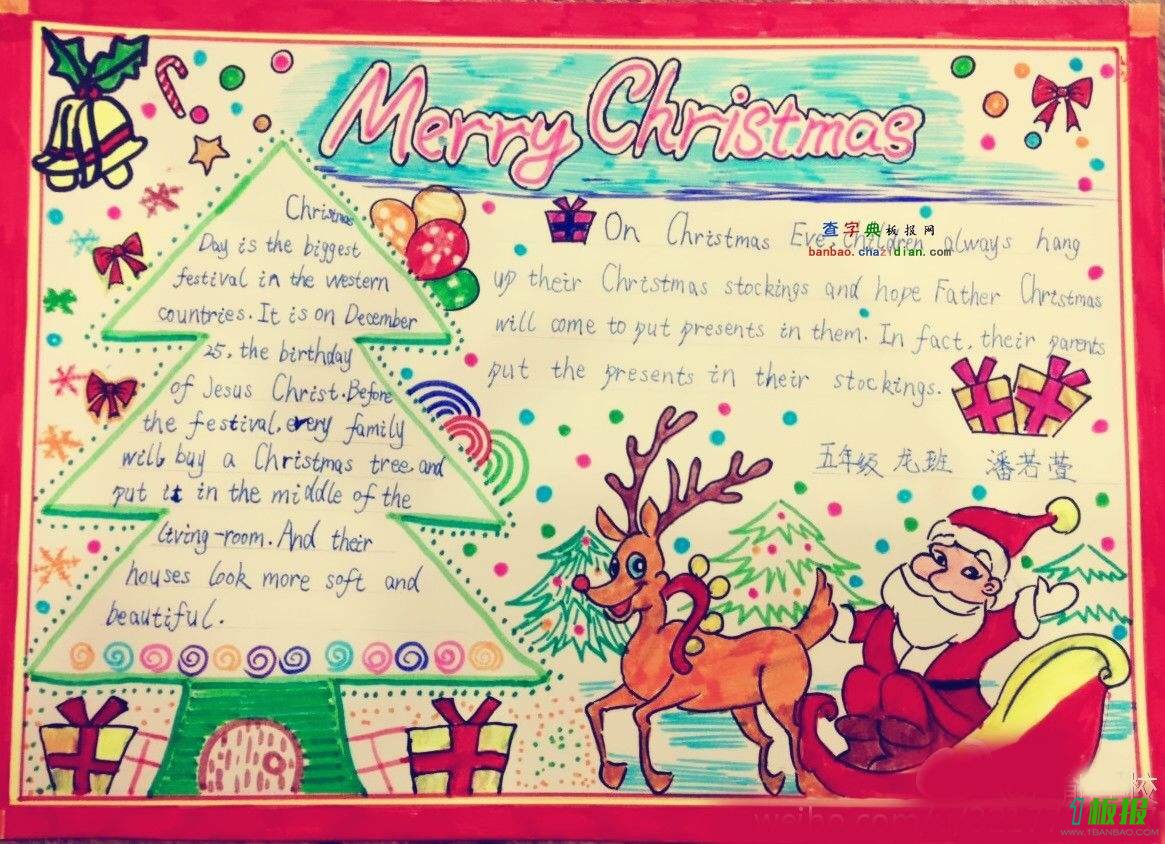 Merry Christmas
Christmas
Day is the biggest
festival in the western
countries. It is on December
25, the birthday
of Jesus Christ. Before
the festival, every family
will buy a Christmas tree and
put it in the middle of the
living-room. And their
houses look more soft and
beautiful.
On Christmas Eve, children always hang
up their Christmas stockings and hope Father Christmas
will come to put presents in them. In fact, their parents
put the presents in their stockings.
查字典板报网
banbao.chazidian.com
五年级 龙班 潘若萱
1板报
WWW.1BANBAO.COM